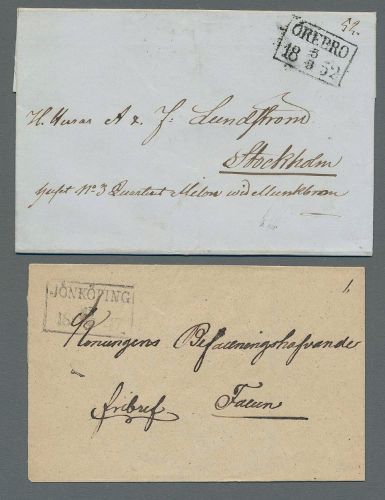 52.
ÖREBRO
5
18 9 52
H. Herrar A & J: Lundstrom
Stockholm
huset No 3 Quarteret Melon wid Munkbron
JÖNKÖPING
1.
Konungens Befallningshafvande
fribref Falun